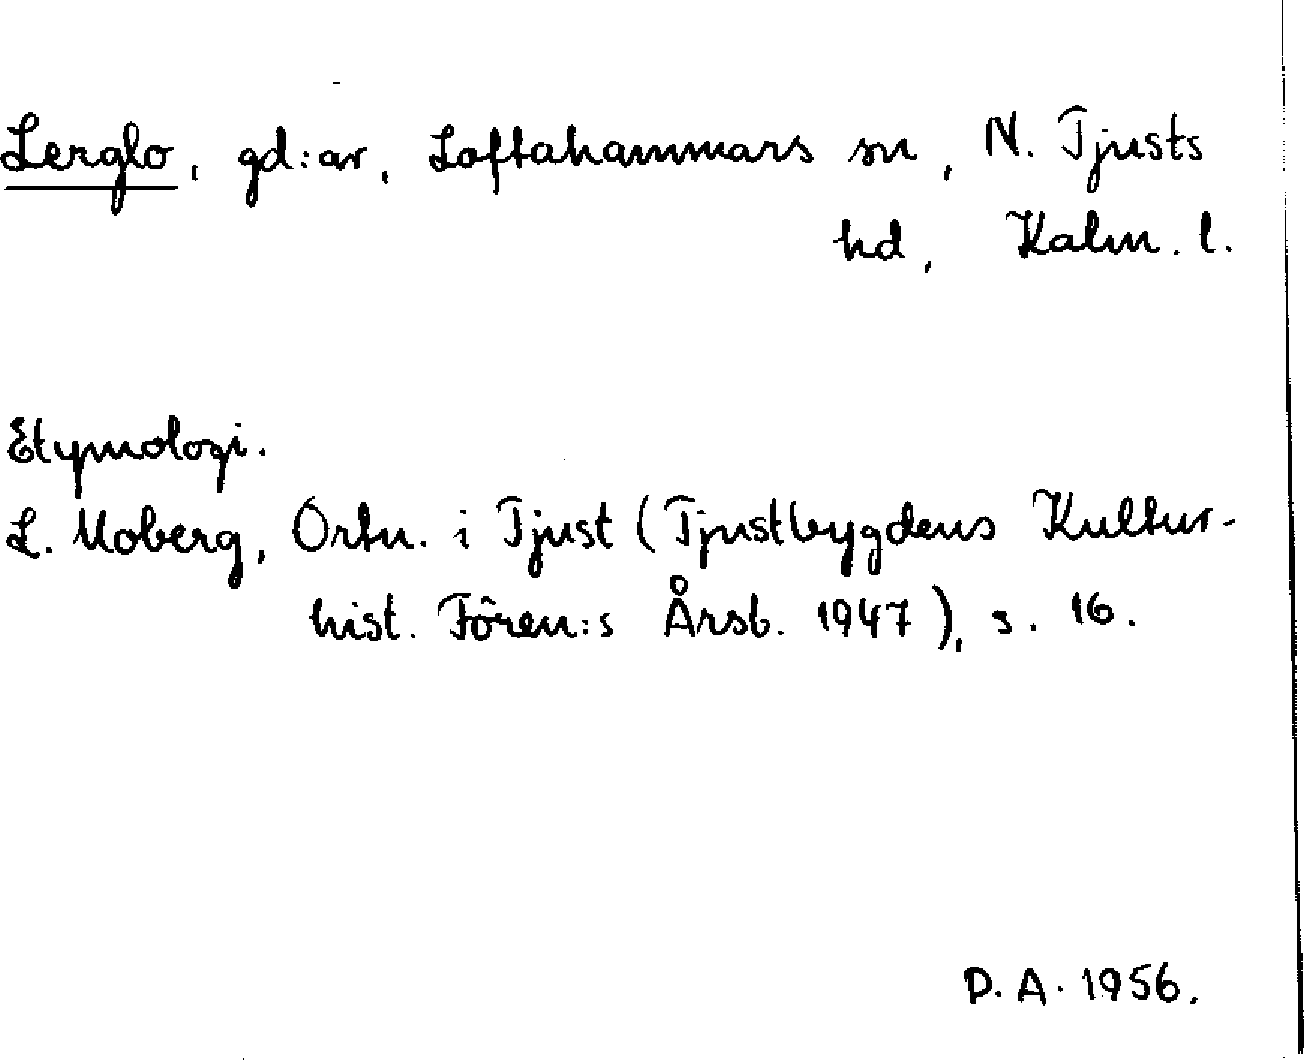 Lerglo, gd:ar, Loftahammars sn, N. Tjusts
hd, Kalm. l.
Etymologi.
L. Moberg, Ortn. i Tjust (Tjustbygdens Kultur-
hist. Fören:s Årsb. 1947), s. 16.
D. A. 1956.